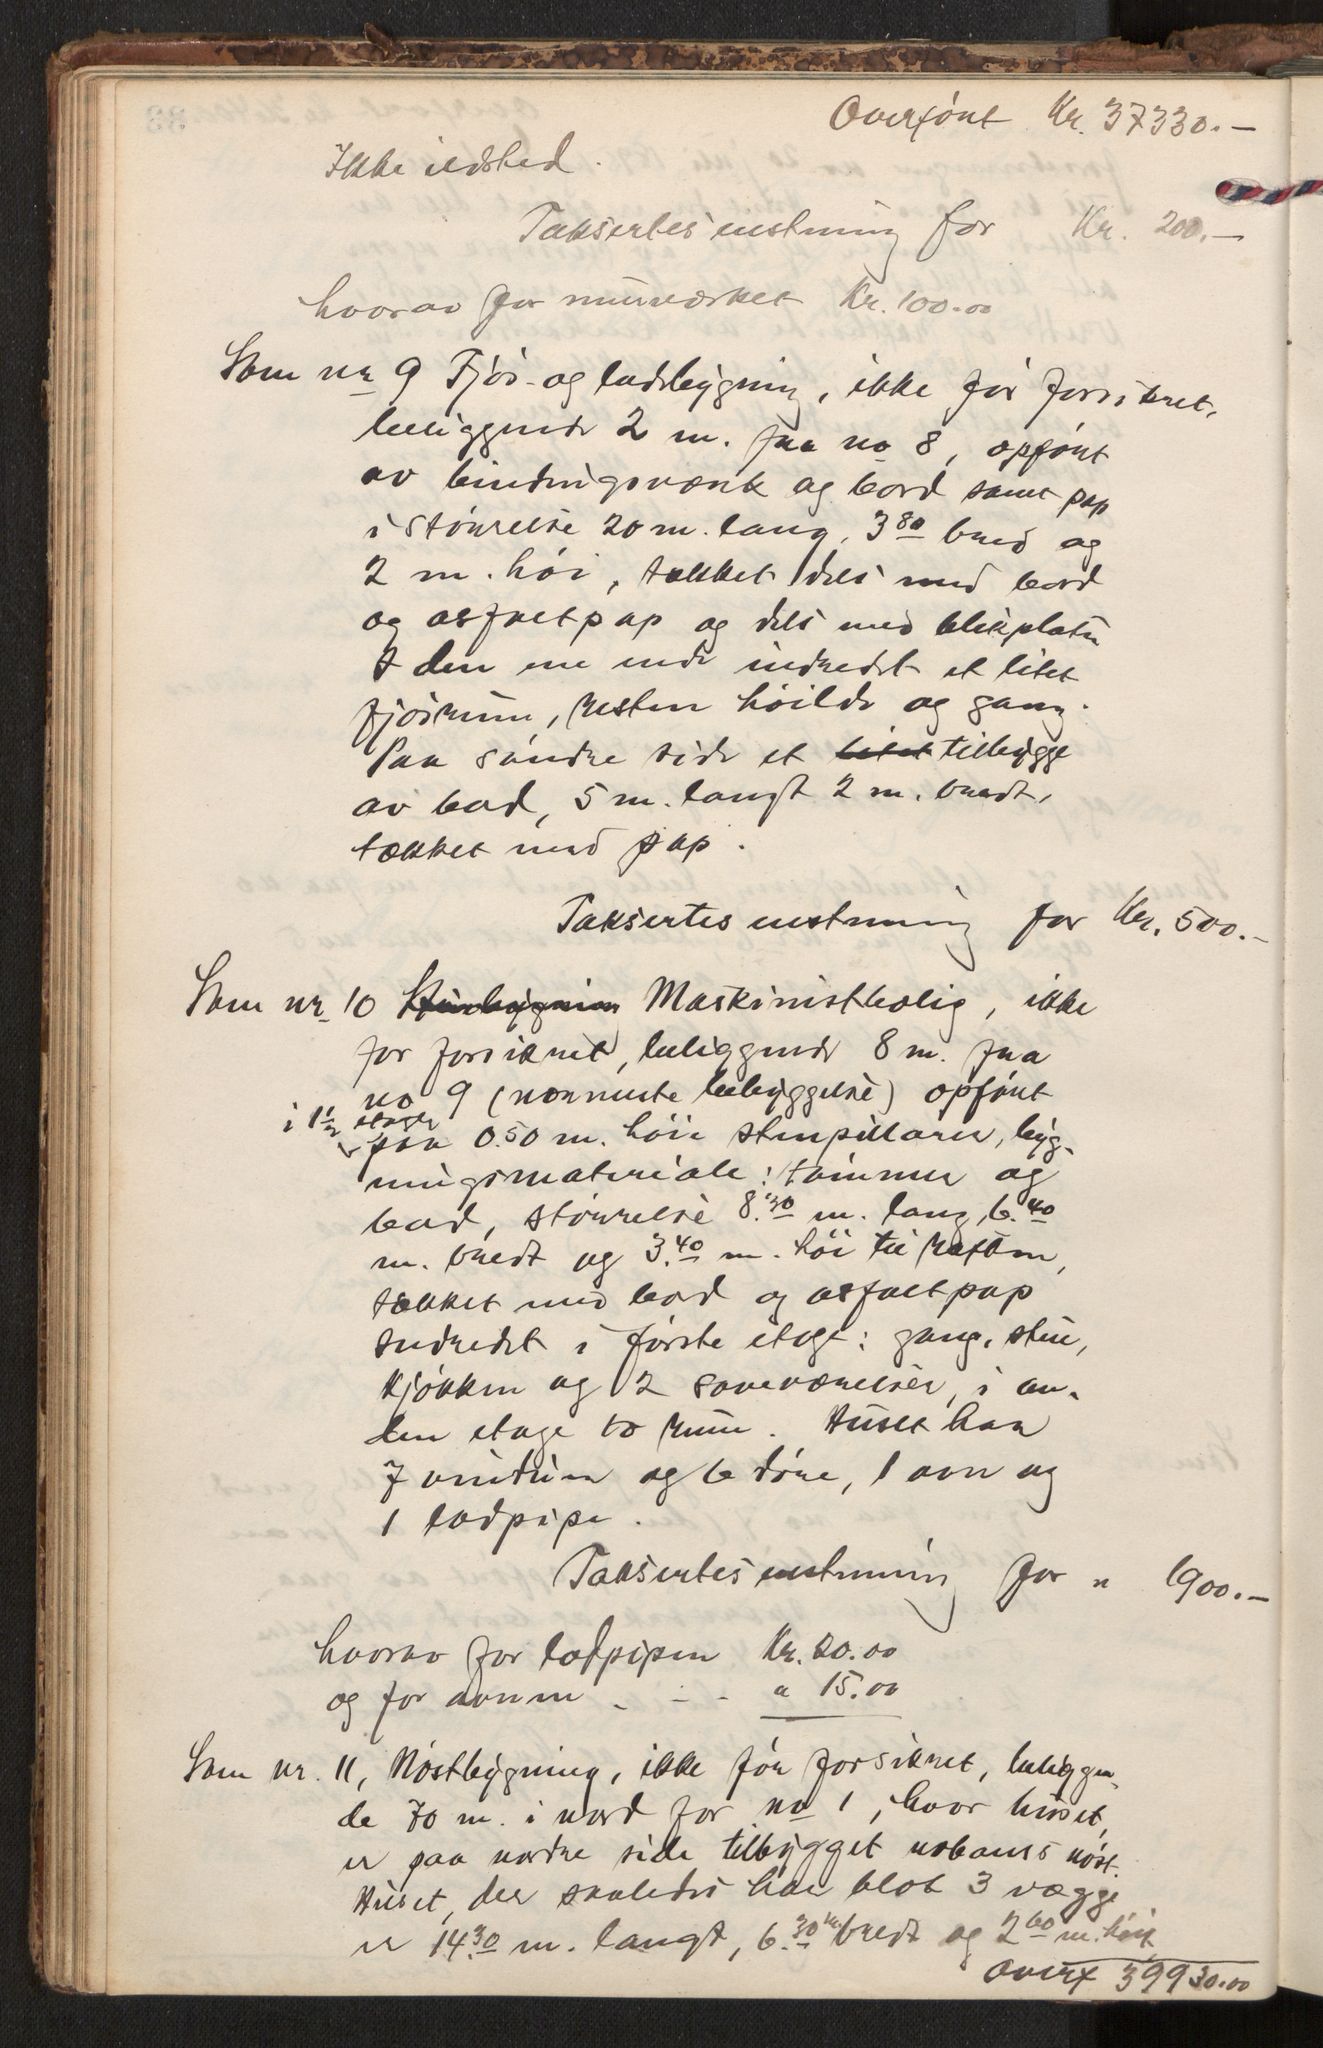 Overført Kr. 37330.—
Ikke ildsted.
Taksertes enstemmig for Kr. 200.—
hvorav for murverket Kr. 100.00
Som nr 9 Fjøs- og ladebygning, ikke før forsikret,
beliggende 2 m. fra no 8, opført
av bindingsverk og bord samt pap
i størrelse 20 m. lang, 3 80 bred og
2 m. høi, tækket dels med bord
og asfaltpap og dels med blikplater
I den ene ende indredet et litet
fjøsrum, resten høilde og gang.
Paa søndre side et litet tilbygge
av bord, 5 m. langt 2 m. bredt,
tækket med pap.
Taksertes enstemmig for Kr. 500.—
Som nr. 10 Maskinistbolig, ikke
før forsikret, beliggende 8 m. fra
no 9 (nærmeste bebyggelse) opført
i 1½ etage
paa 0.50 m. høie stenpillarer, byg-
ningsmateriale: tømmer og
bord, størrelse 8.30 m. lang, 6.40
m. bredt og 3.40 m. høi til raften,
tækket med bord og asfaltpap
Indredet i første etage: gang, stue,
kjøkken og 2 soveværelser, i an-
den etage to rum. Huset har
7 vinduer og 6 døre, 1 ovn og
1 lodpipe.
Taksertes enstemmig for " 1900.—
hvorav for lodpipen Kr. 80.00
og for ovnen - - - " 15.00
Som nr. 11, Nøstbygning, ikke før forsikret, beliggen-
de 70 m. i nord for no 1, hvor huset,
er paa nordre side tilbygget nabanes nøst.
Huset, der saaledes har blot 3 vægge
er 14.30 m. langt, 6.30 m. bredt og 2 60 m. høit
Overf 39930.00